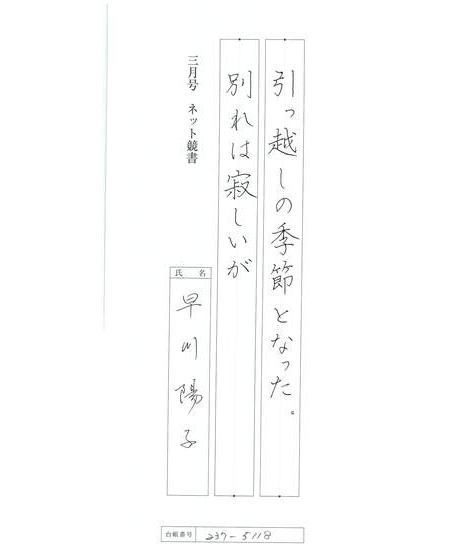 引っ越しの季節となった。
別れは寂しいが
三月号 ネット競書
氏名
早川陽子
台帳番号 237-5118